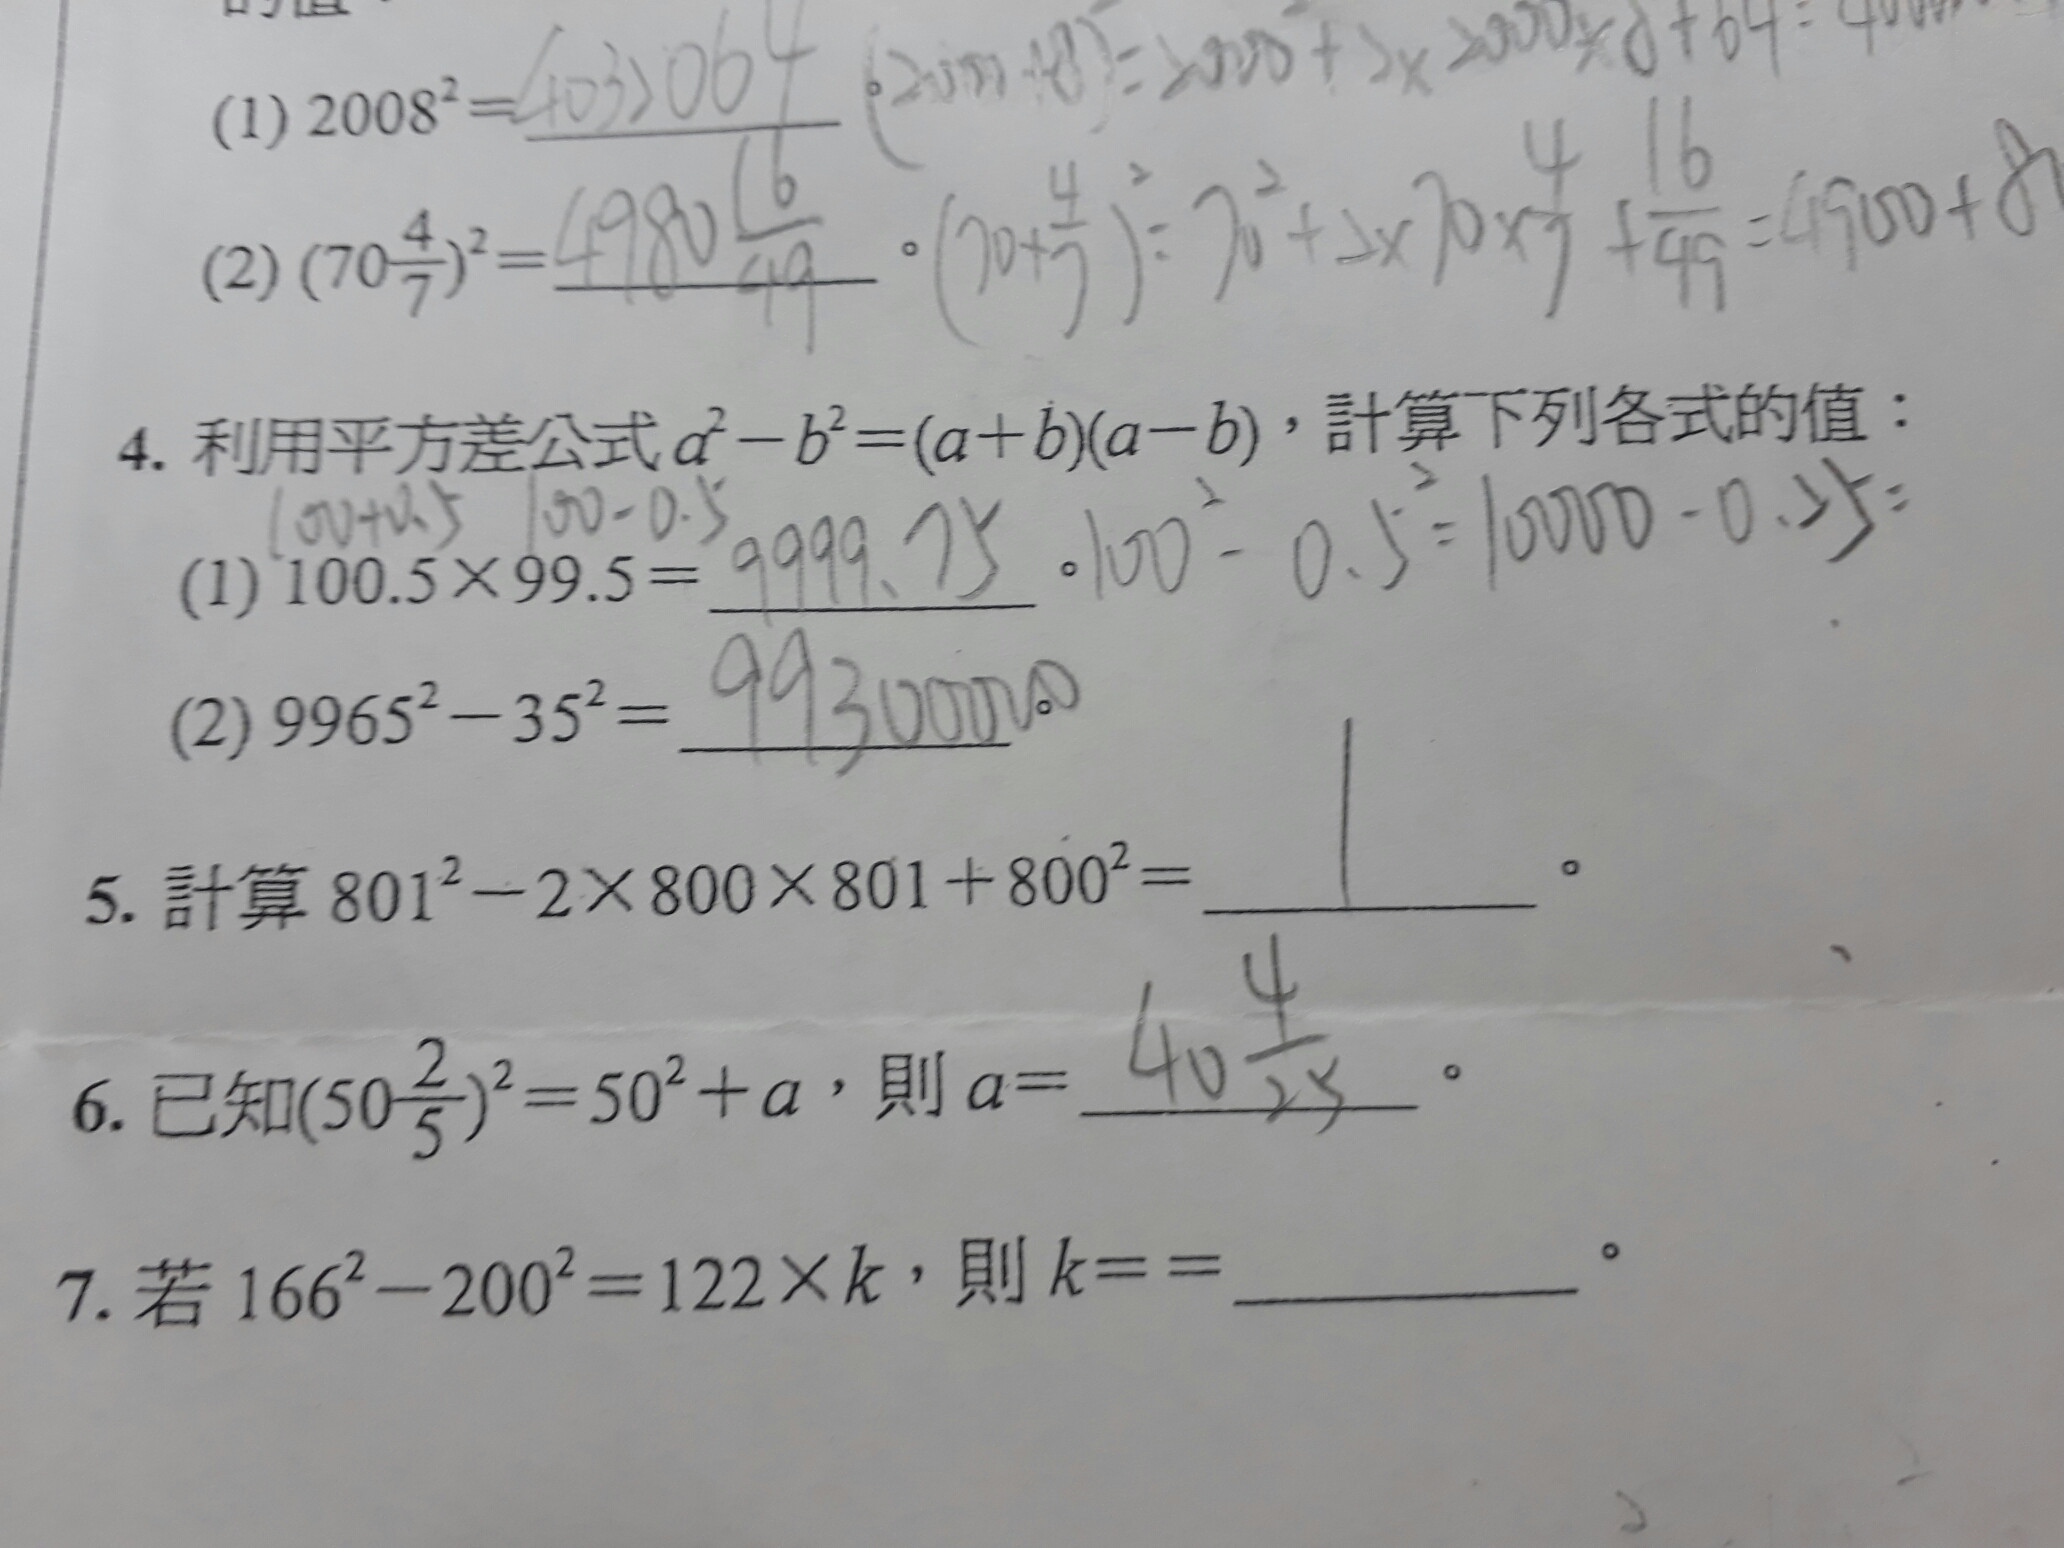 的值：
(1) 2008²=4032064。(2000+8)²=2000²+2×2000×8+64=
(2) (70 4/7)²=4980 16/49。(70+4/7)²=70²+2×70×4/7+16/49=4900+8
4. 利用平方差公式 a²－b²=(a+b)(a－b)，計算下列各式的值：
100+0.5 100-0.5
(1) 100.5×99.5=9999.75。100²-0.5²=10000-0.25=
(2) 9965²－35²=99300000。
5. 計算 801²－2×800×801+800²=1。
6. 已知(50 2/5)²=50²+a，則 a=40 4/25。
7. 若 166²－200²=122×k，則 k==。